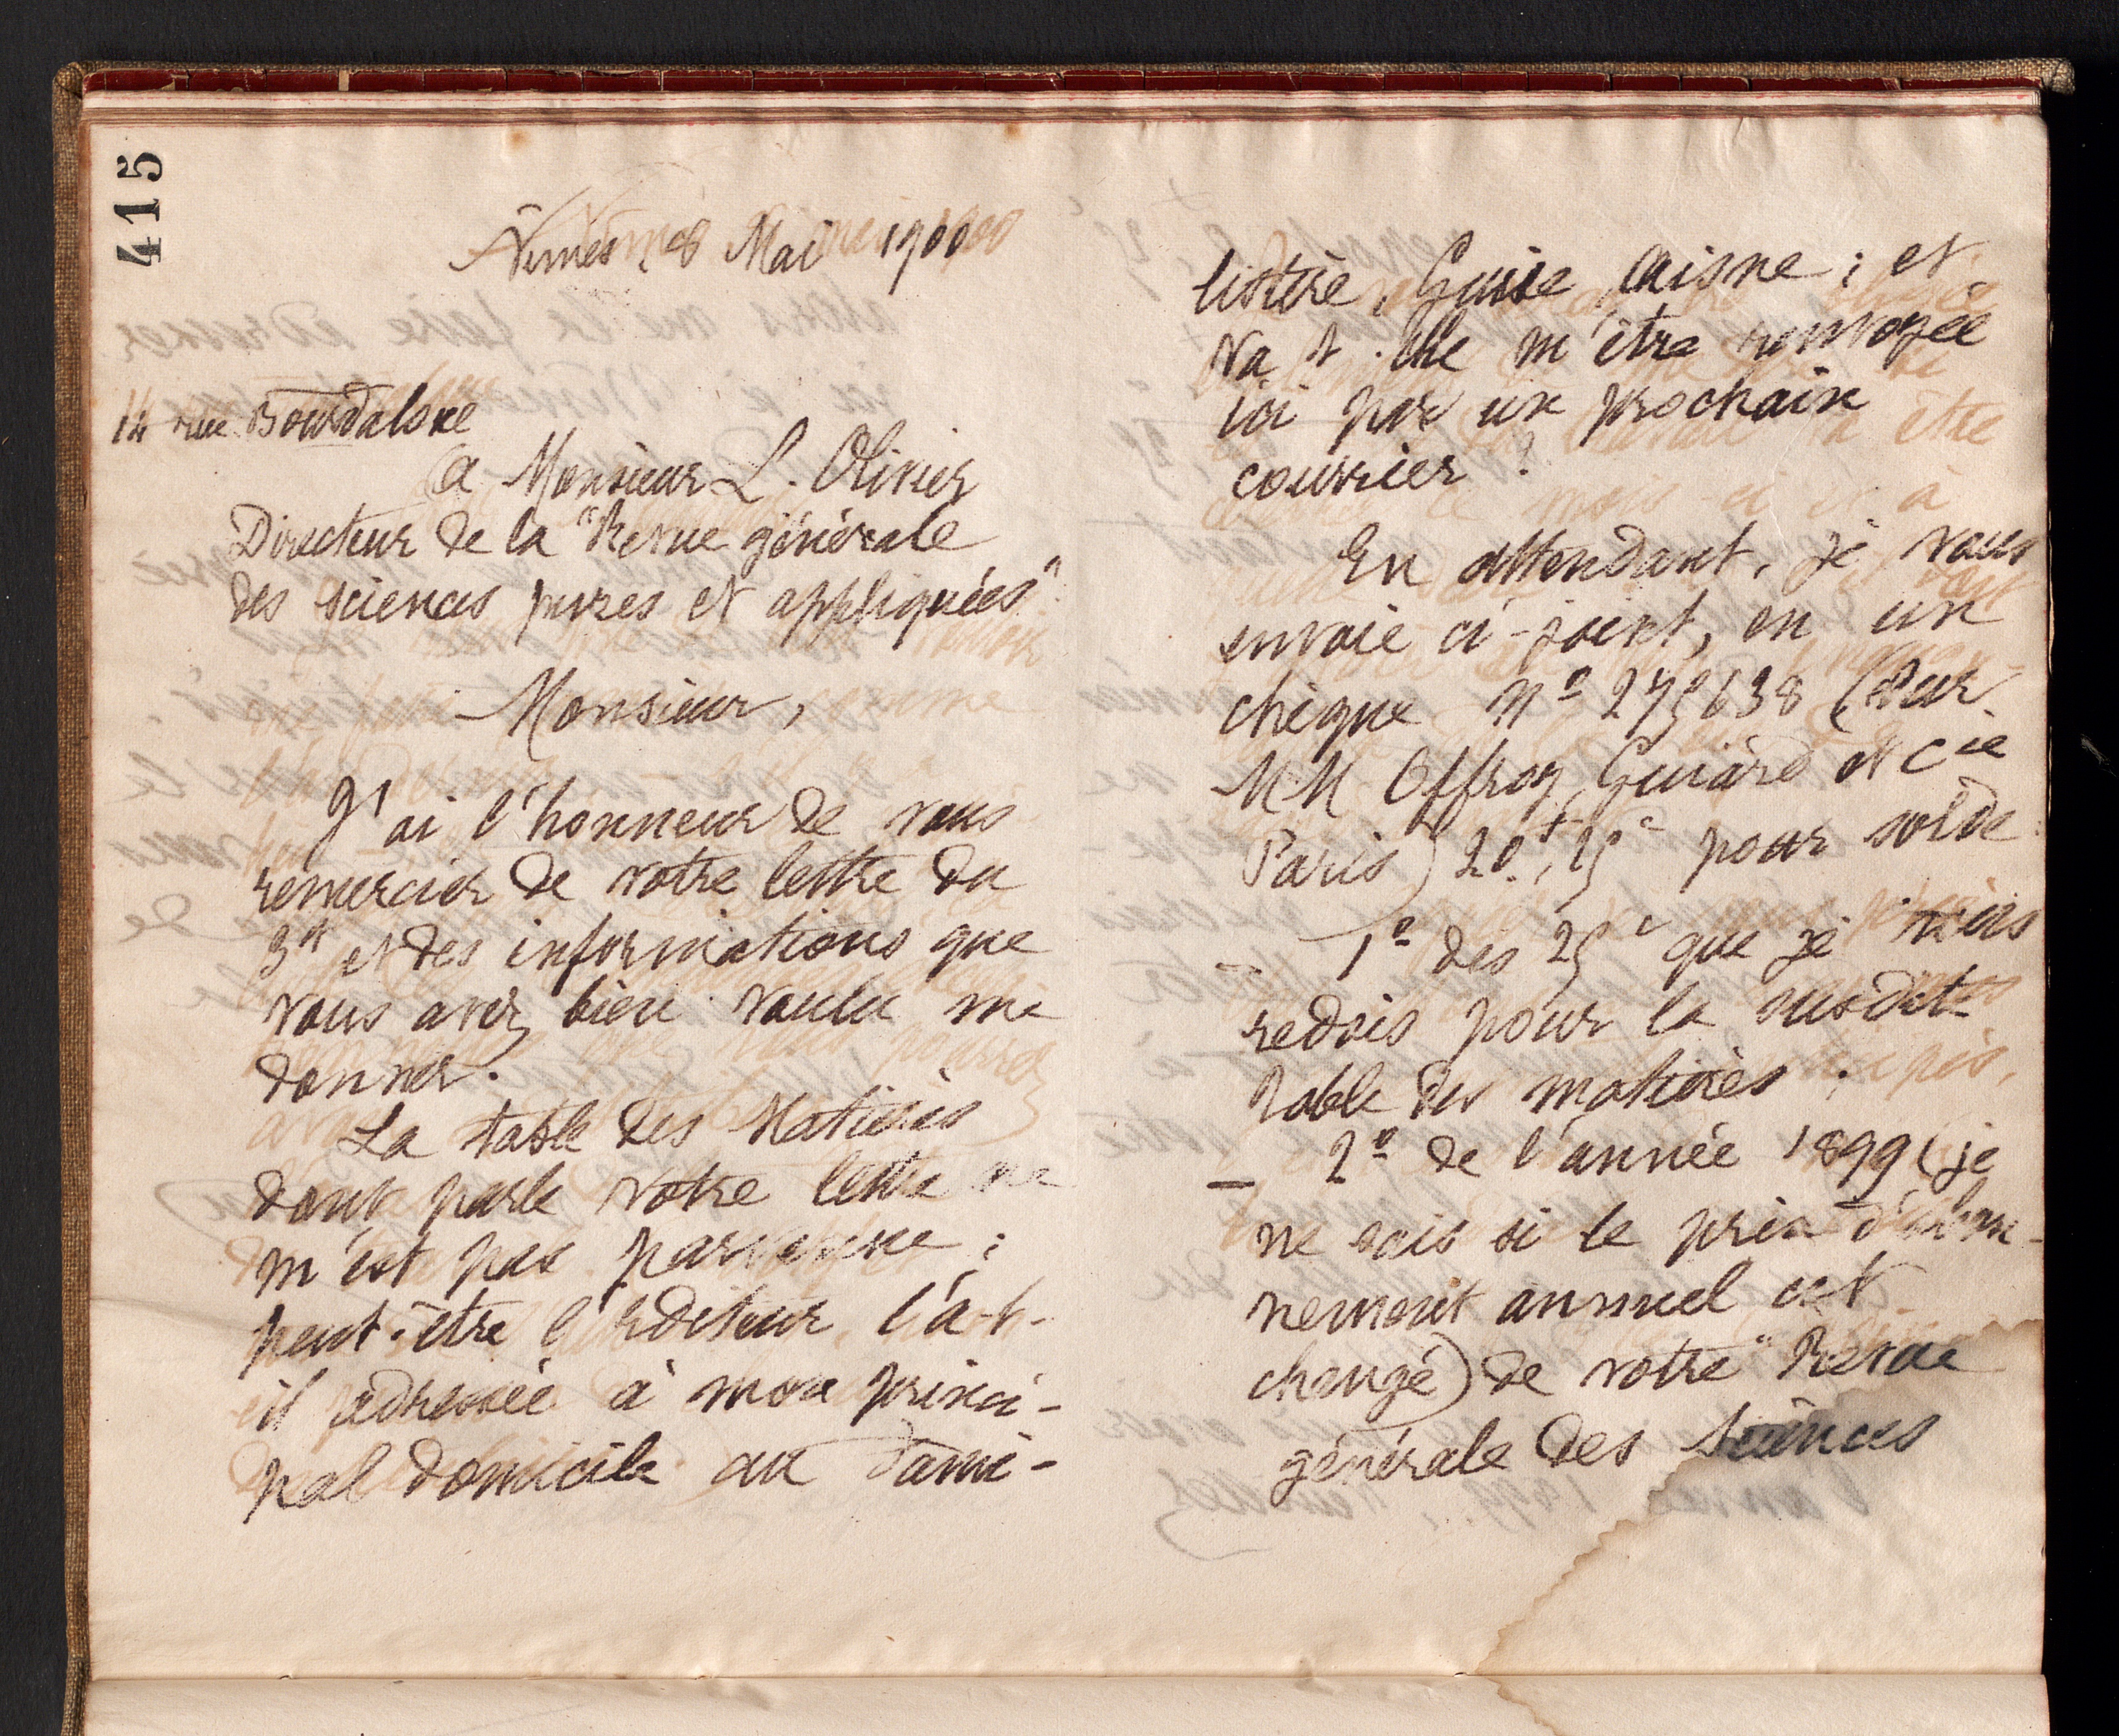 415
Nîmes, 8 Mai 1900
14 rue Bourdaloue
A Monsieur L. Olivier
Directeur de la "Revue générale
des sciences pures et appliquées"
Monsieur,
J'ai l'honneur de vous
remercier de votre lettre du
3 et et des informations que
vous avez bien voulu me
donner.
La table des Matières
dont parle votre lettre ne
m'est pas parvenue ;
peut-être l'éditeur l'a-t-
il adressée à mon princi-
pal domicile au Fami-
listère, Guise, Aisne ; et
va-t-elle m'être renvoyée
ici par un prochain
courrier ?
En attendant, je vous
envoie ci-joint, en un
chèque nº 275638 (sur
MM Offroy, Guiard et Cie
Paris) 20f,25c pour solde
— 1º des 25c que je
redois pour la susdite
table des matières ;
— 2º de l'année 1899 (je
ne sais si le prix d'abon-
nement annuel est
changé) de votre "Revue
générale des Sciences